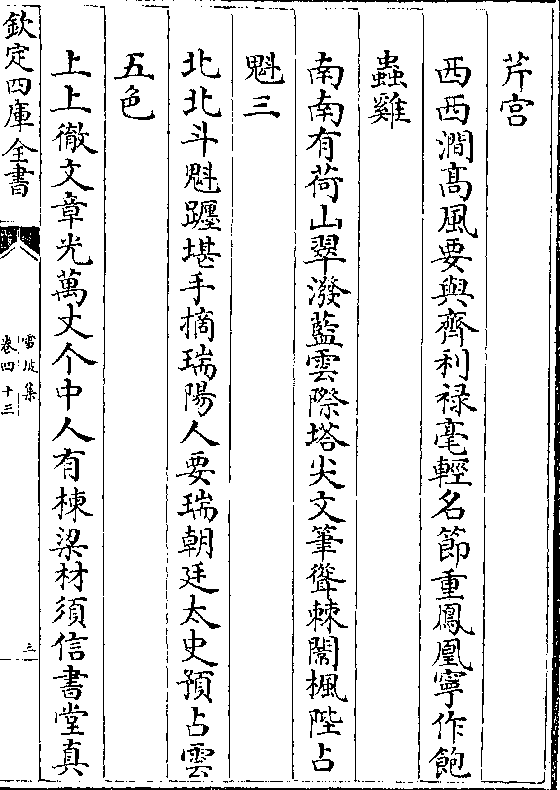 芹宫
西西澗髙風要與齊利禄毫輕名節重鳳凰寧作飽
蟲雞
南南有荷山翠潑藍雲際塔尖文筆聳棘闈楓陛占
魁三
北北斗魁躔堪手摘瑞陽人要瑞朝廷太史預占雲
五色
上上徹文章光萬丈个中人有棟梁材須信書堂真
欽定四庫全書
雪坡集
卷四十三
三